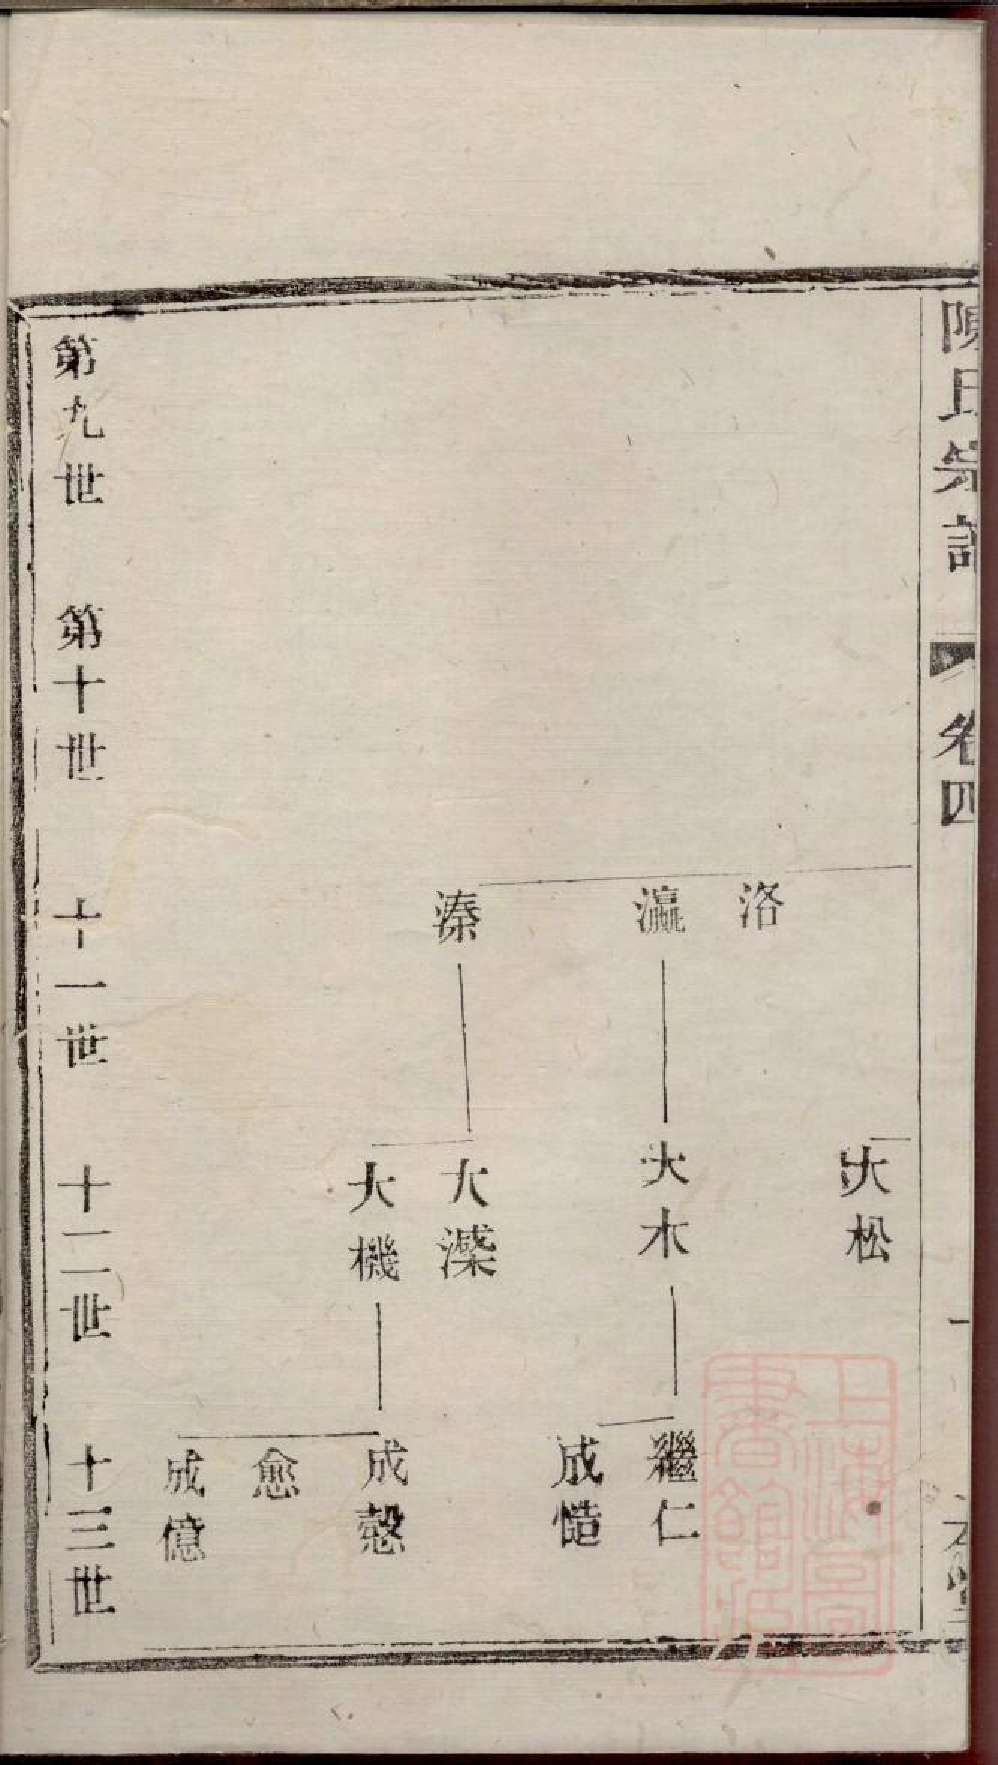 陳氏宗譜
卷四
洛
瀛
溱
大松
大木
大濼
大機
繼仁
成慥
成慤
愈
成億
第九世
第十世
十一世
十二世
十三世